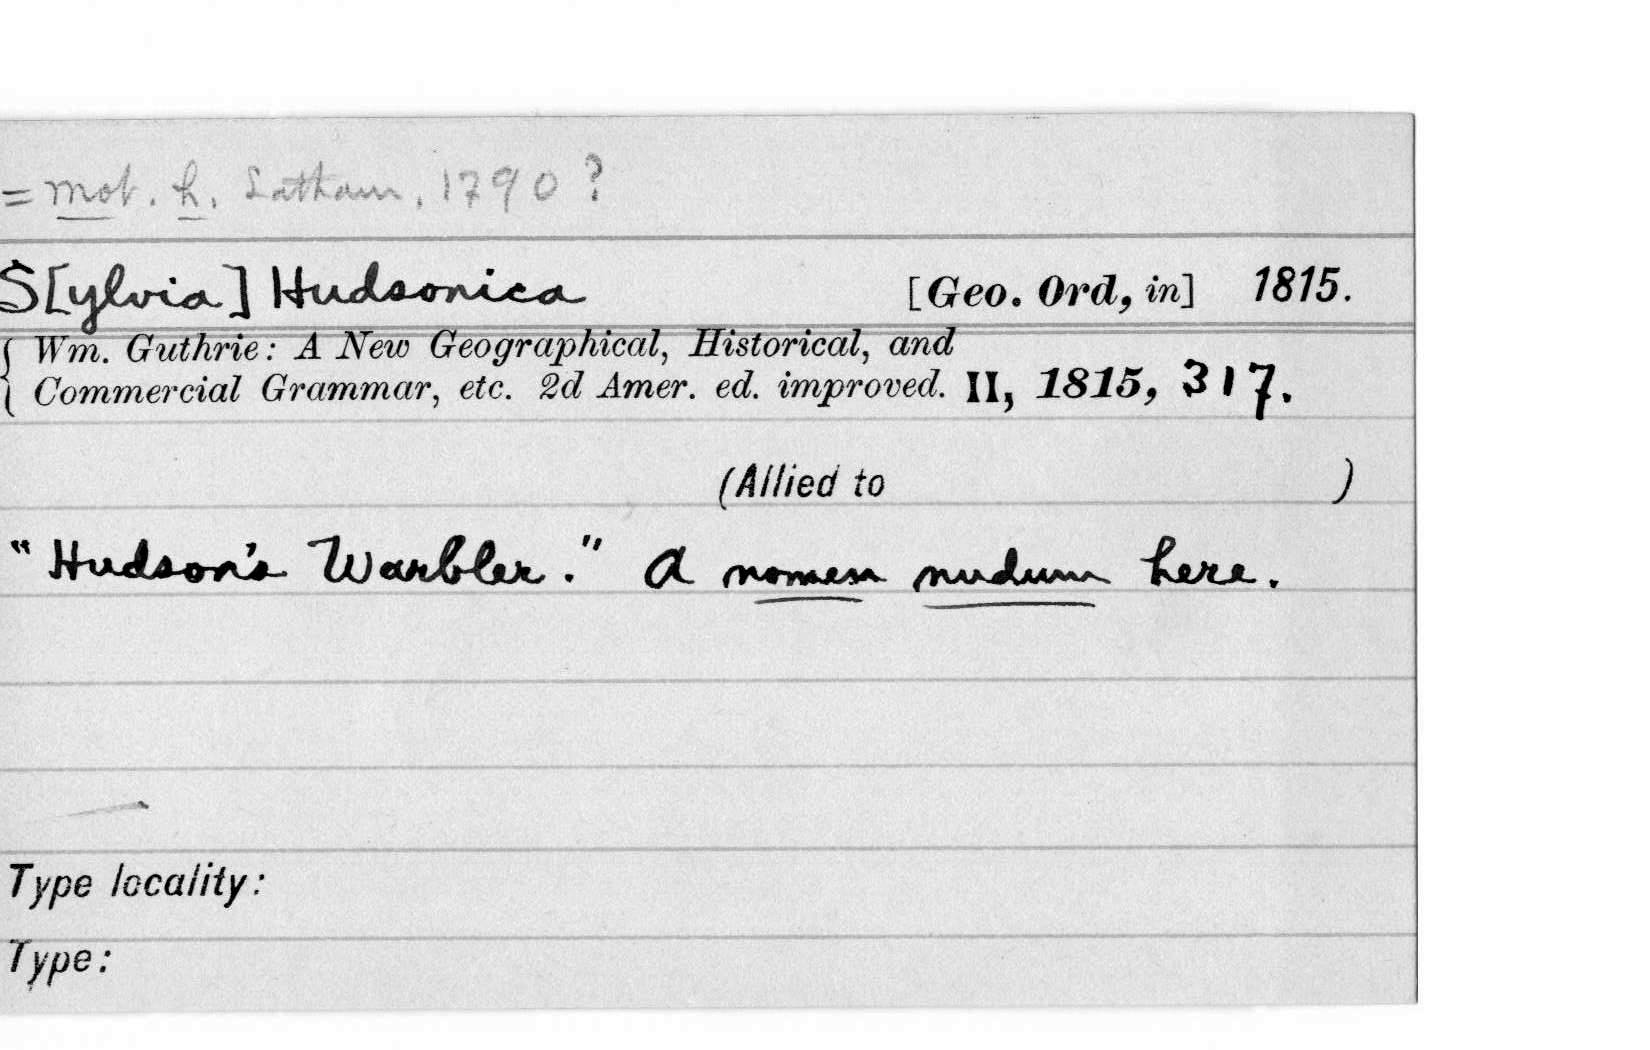 = Mot. h. Latham, 1790 ?
S[ylvia] Hudsonica [Geo. Ord, in] 1815.
{ Wm. Guthrie: A New Geographical, Historical, and
Commercial Grammar, etc. 2d Amer. ed. improved. II, 1815, 317.
(Allied to )
"Hudson's Warbler." A nomen nudum here.
Type locality:
Type: